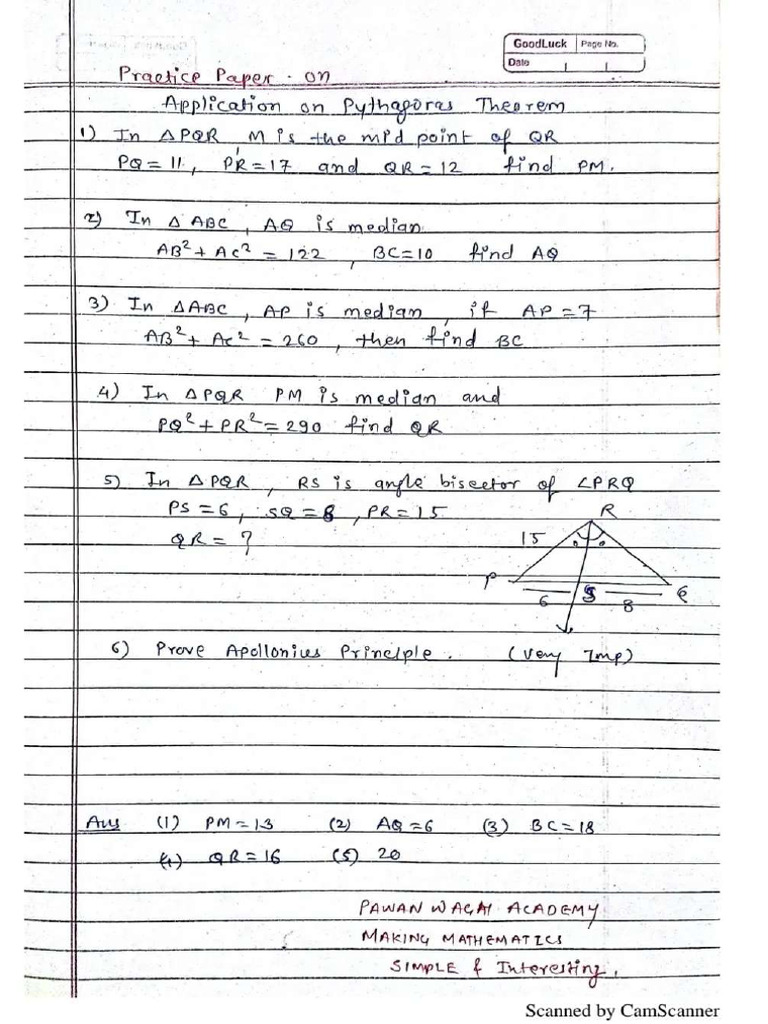 GoodLuck Page No.
Date
Practice Paper on
Application on Pythagoras Theorem
1) In △PQR, M is the mid point of QR
PQ = 11, PR = 17 and QR = 12 find PM.
2) In △ABC, AQ is median
AB² + AC² = 122, BC = 10 find AQ
3) In △ABC, AP is median, if AP = 7
AB² + AC² = 260, then find BC
4) In △PQR PM is median and
PQ² + PR² = 290 find QR
5) In △PQR, RS is angle bisector of ∠PRQ
PS = 6, SQ = 8, PR = 15
QR = ?
R
15
P
6 S 8
6) Prove Apollonius Principle. (Very Imp)
Ans (1) PM = 13 (2) AQ = 6 (3) BC = 18
(4) QR = 16 (5) 20
PAWAN WAGAI ACADEMY
MAKING MATHEMATICS
SIMPLE & Interesting.
Scanned by CamScanner